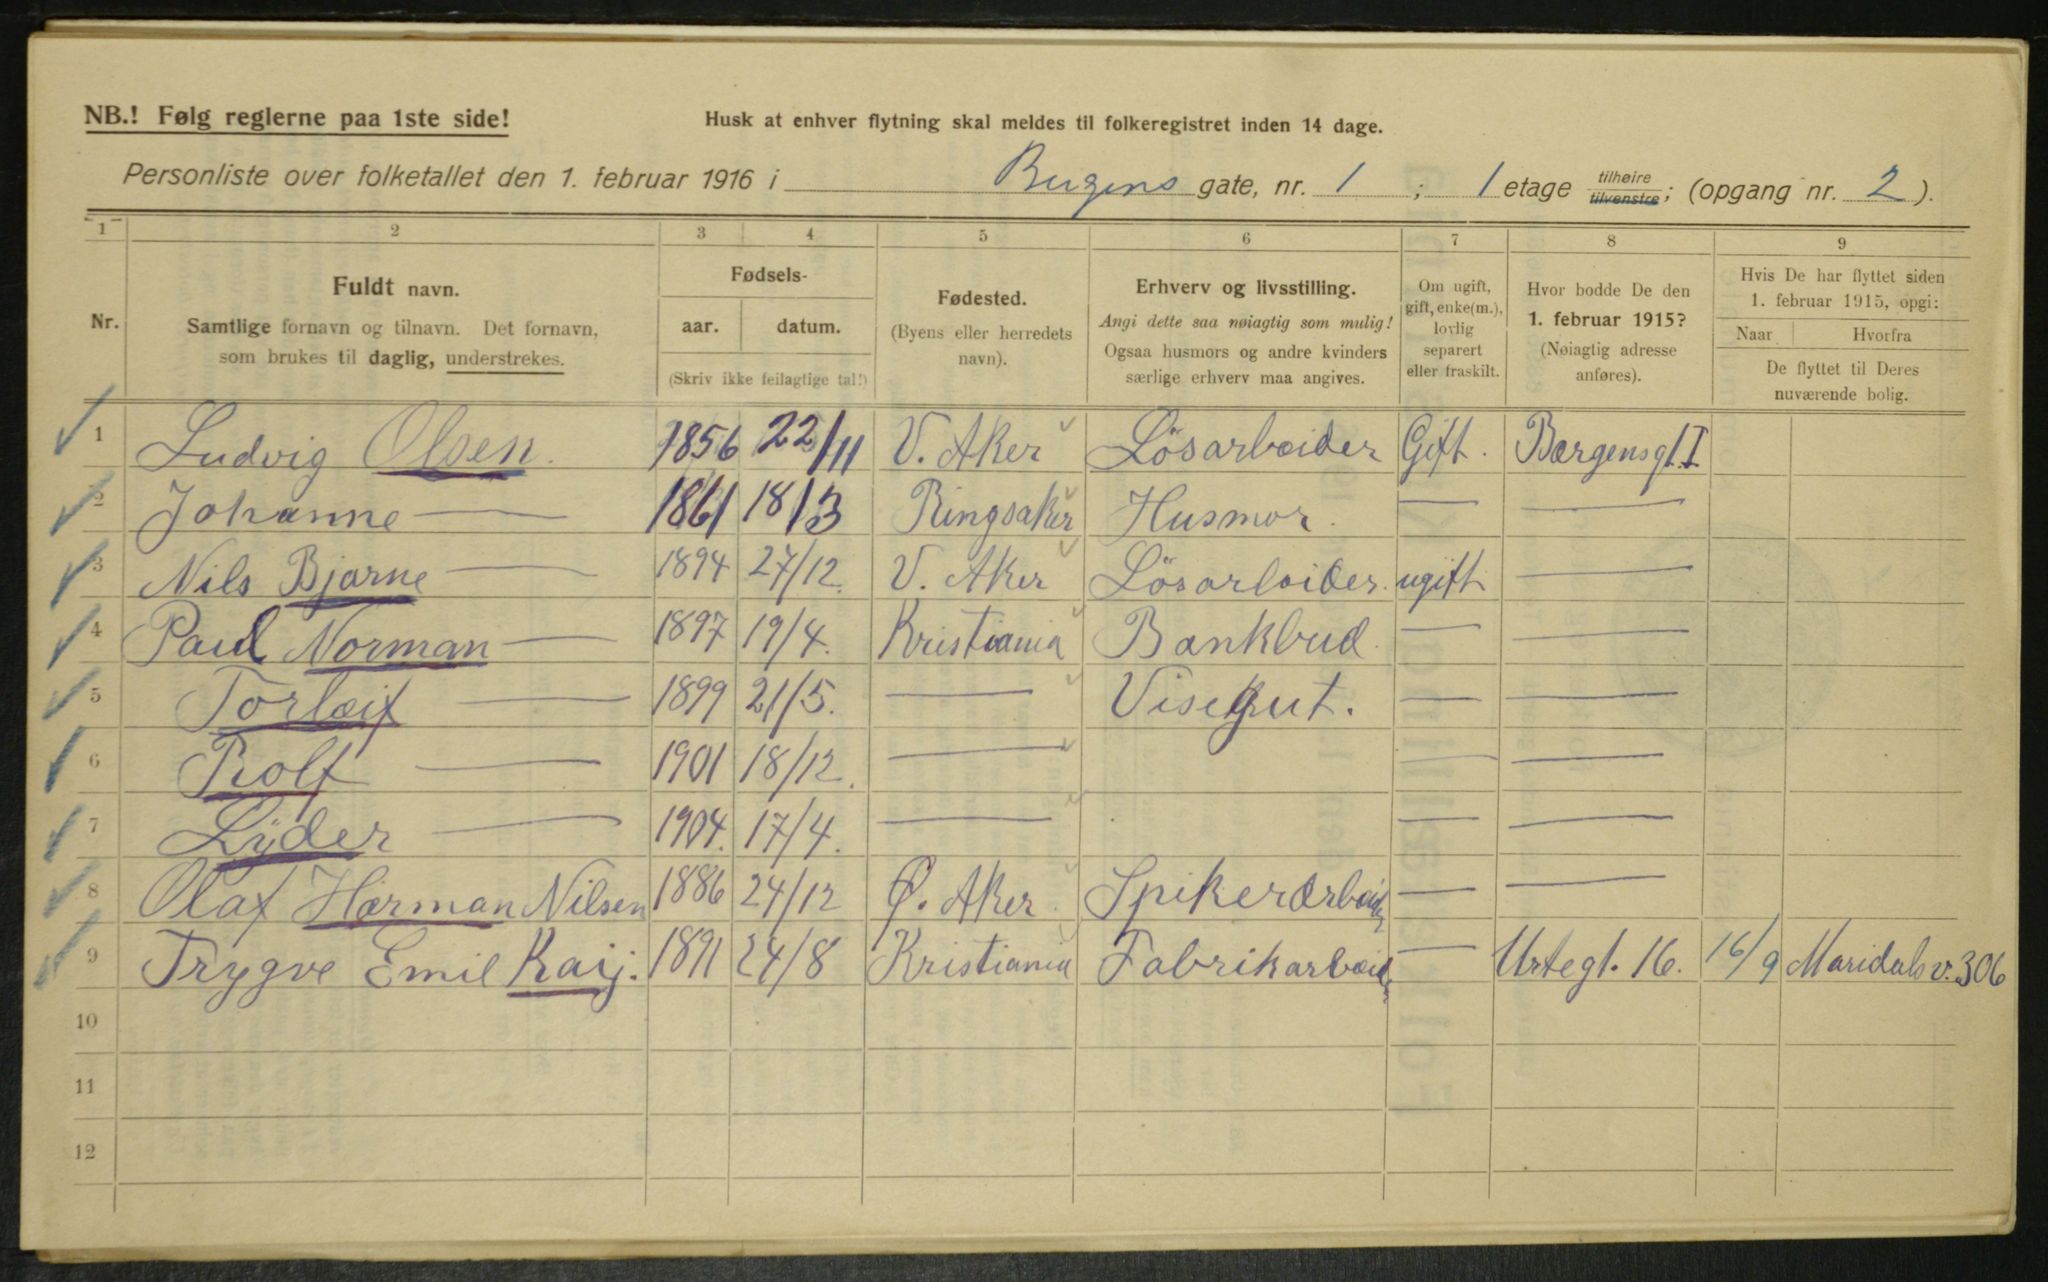 NB.! Følg reglerne paa 1ste side!
Husk at enhver flytning skal meldes til folkeregistret inden 14 dage.
Personliste over folketallet den 1. februar 1916 i Bergens gate, nr. 1 ; 1 etage tilhøire tilvenstre ; (opgang nr. 2 ).
1 2 3 4 5 6 7 8 9
Nr.
Fuldt navn.
Samtlige fornavn og tilnavn. Det fornavn,
som brukes til daglig, understrekes.
Fødsels-
aar. datum.
(Skriv ikke feilagtige tal!)
Fødested.
(Byens eller herredets
navn).
Erhverv og livsstilling.
Angi dette saa nøiagtig som mulig!
Ogsaa husmors og andre kvinders
særlige erhverv maa angives.
Om ugift,
gift, enke(m.),
lovlig
separert
eller fraskilt.
Hvor bodde De den
1. februar 1915?
(Nøiagtig adresse
anføres).
Hvis De har flyttet siden
1. februar 1915, opgi:
Naar Hvorfra
De flyttet til Deres
nuværende bolig.
1 Ludvig Olsen. 1856 22/11 V. Aker Lösarbeider Gift. Bergensgt. I
2 Johanne — 1861 18/3 Ringsaker Husmor. — —
3 Nils Bjarne — 1894 27/12. V. Aker Lösarbeider. ugift —
4 Paul Norman — 1897 19/4. Kristiania Bankbud. — —
5 Torleif — 1899 21/5. — Visergut. — —
6 Rolf — 1901 18/12. — — —
7 Lyder — 1904. 17/4. — — —
8 Olaf Herman Nilsen 1886 24/12 Ø. Aker Spikerarbeider — —
9 Trygve Emil Kaij. 1891 24/8 Kristiania Fabrikarbeider — Urtegt. 16. 16/9 Maridalsv. 306
10
11
12